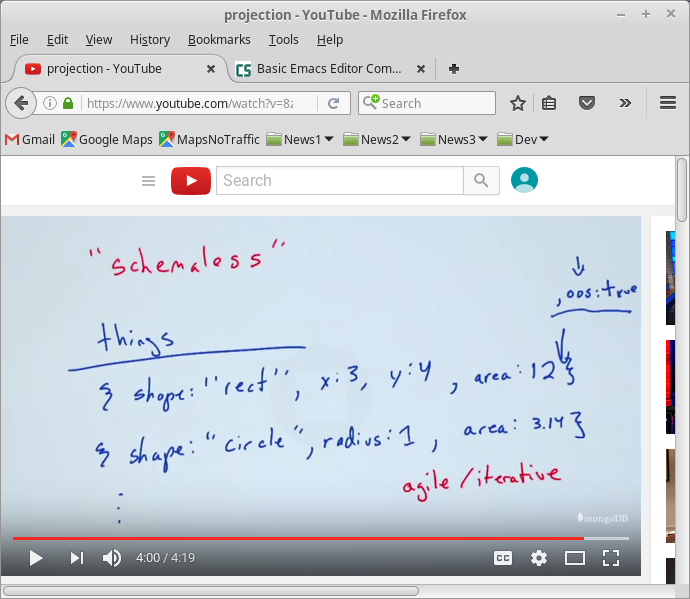 projection - YouTube - Mozilla Firefox
File Edit View History Bookmarks Tools Help
projection - YouTube
Basic Emacs Editor Com...
https://www.youtube.com/watch?v=8z
Search
Gmail Google Maps MapsNoTraffic News1 News2 News3 Dev
Search
"schemaless"
, oos:true
things
{ shape:"rect", x:3, y:4, area:12 }
{ shape:"circle", radius:1, area: 3.14 }
agile/iterative
mongoDB
4:00 / 4:19
CC